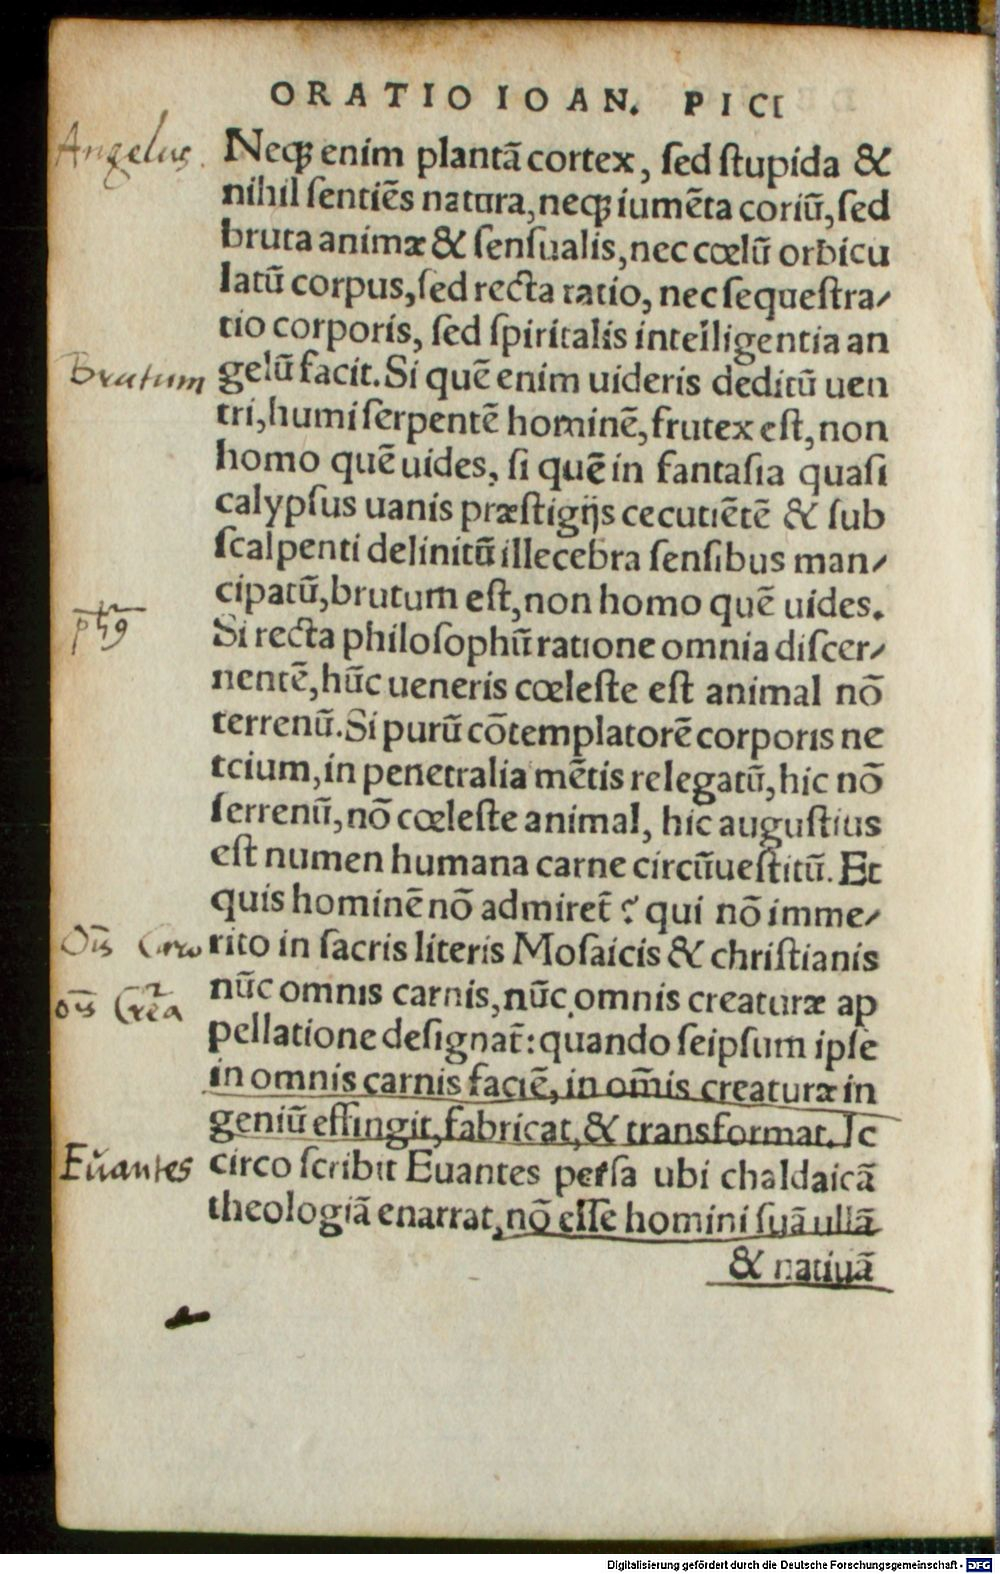 ORATIO IOAN. PICI
Angelus.
Neqꝫ enim plantā cortex, ſed ſtupida &
nihil ſentiēs natura, neqꝫ iumēta coriū, ſed
bruta animæ & ſenſualis, nec cœlū orbicu
latū corpus, ſed recta ratio, nec ſequeſtra/
tio corporis, ſed ſpiritalis intelligentia an
Brutum
gelū facit. Si quē enim uideris deditū uen
tri, humi ſerpentē hominē, frutex eſt, non
homo quē uides, ſi quē in fantaſia quaſi
calypſus uanis præſtigijs cecutiētē & ſub
ſcalpenti delinitū illecebra ſenſibus man/
cipatū, brutum eſt, non homo quē uides.
Si recta philoſophū ratione omnia diſcer/
nentē, hūc ueneris cœleſte eſt animal nō
terrenū. Si purū cōtemplatorē corporis ne
tcium, in penetralia mētis relegatū, hic nō
ſerrenū, nō cœleſte animal, hic auguſtius
eſt numen humana carne circūueſtitū. Et
quis hominē nō admiret̄ ? qui nō imme/
Oīs Caro
rito in ſacris literis Moſaicis & chriſtianis
oīs Crea
nūc omnis carnis, nūc omnis creaturæ ap
pellatione deſignat̄: quando ſeipſum ipſe
in omnis carnis faciē, in om̄is creaturæ in
geniū effingit, fabricat, & transformat. Ic
Euantes
circo ſcribit Euantes perſa ubi chaldaicā
theologiā enarrat, nō eſſe homini ſuā ullā
& natiuā
Digitalisierung gefördert durch die Deutsche Forschungsgemeinschaft - DFG